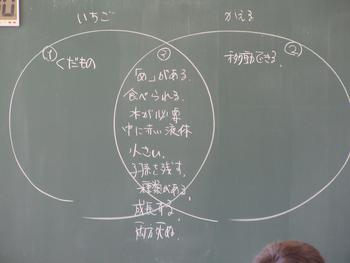 いちご
かえる
①
くだもの
③
「め」がある。
食べられる。
水が必要
中に赤い液体
小さい。
子孫を残す。
種類がある。
成長する。
両方死ぬ。
②
移動できる。